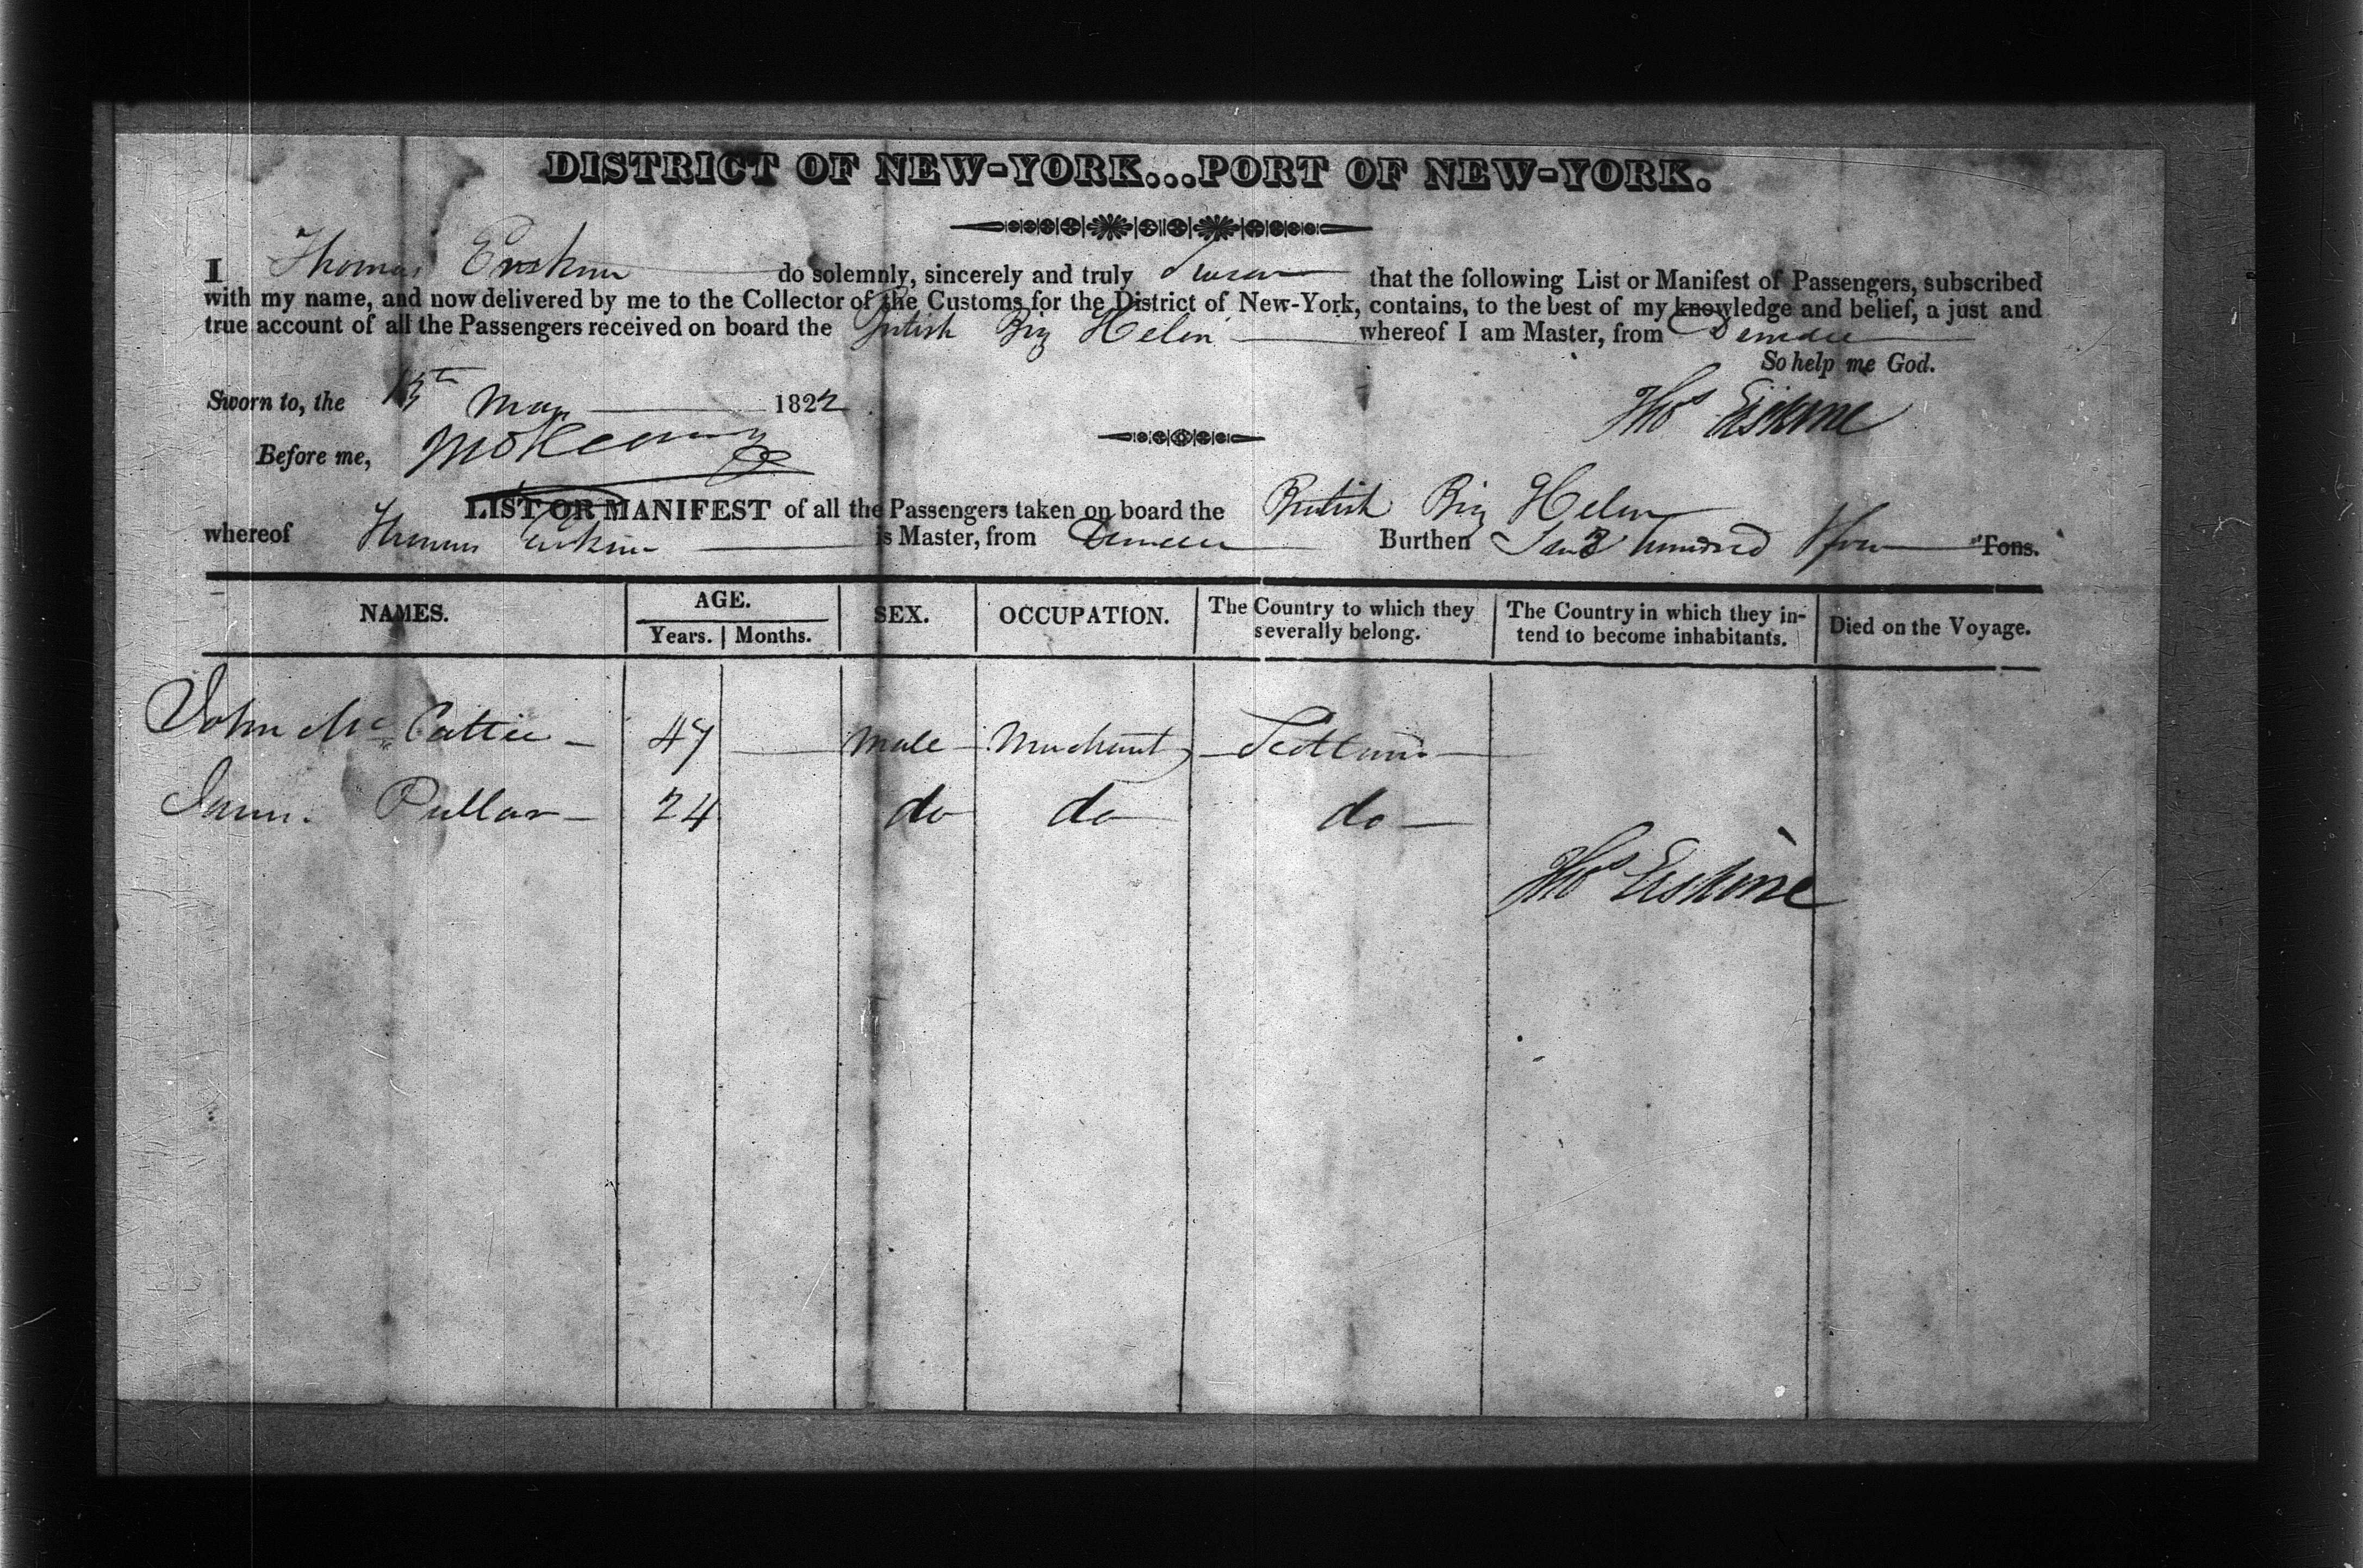 DISTRICT OF NEW-YORK...PORT OF NEW-YORK.
I Thomas Erskine do solemnly, sincerely and truly Swear that the following List or Manifest of Passengers, subscribed
with my name, and now delivered by me to the Collector of the Customs for the District of New-York, contains, to the best of my knowledge and belief, a just and
true account of all the Passengers received on board the British Brig Helen whereof I am Master, from Dundee
So help me God.
Sworn to, the 15th May 1822
Thos Erskine
Before me,
LIST OR MANIFEST of all the Passengers taken on board the British Brig Helen
whereof Thomas Erskine is Master, from Dundee Burthen hundred Tons.
NAMES. AGE. SEX. OCCUPATION. The Country to which they severally belong. The Country in which they intend to become inhabitants. Died on the Voyage.
Years. Months.
John Mc Cattie 47 Male Merchant Scotland
James Pullar 24 do do do
Thos Erskine